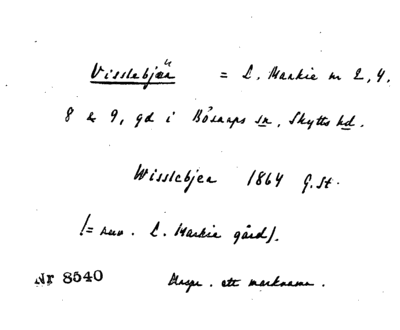 Visslebjär = L. Markie nr 2, 4,
8 & 9, gd i Bösarps sn, Skytts hd.
Wisslebjer 1864 G.St.
[= nuv. L. Markie gård].
Nr 8540 Urspr. ett marknamn.